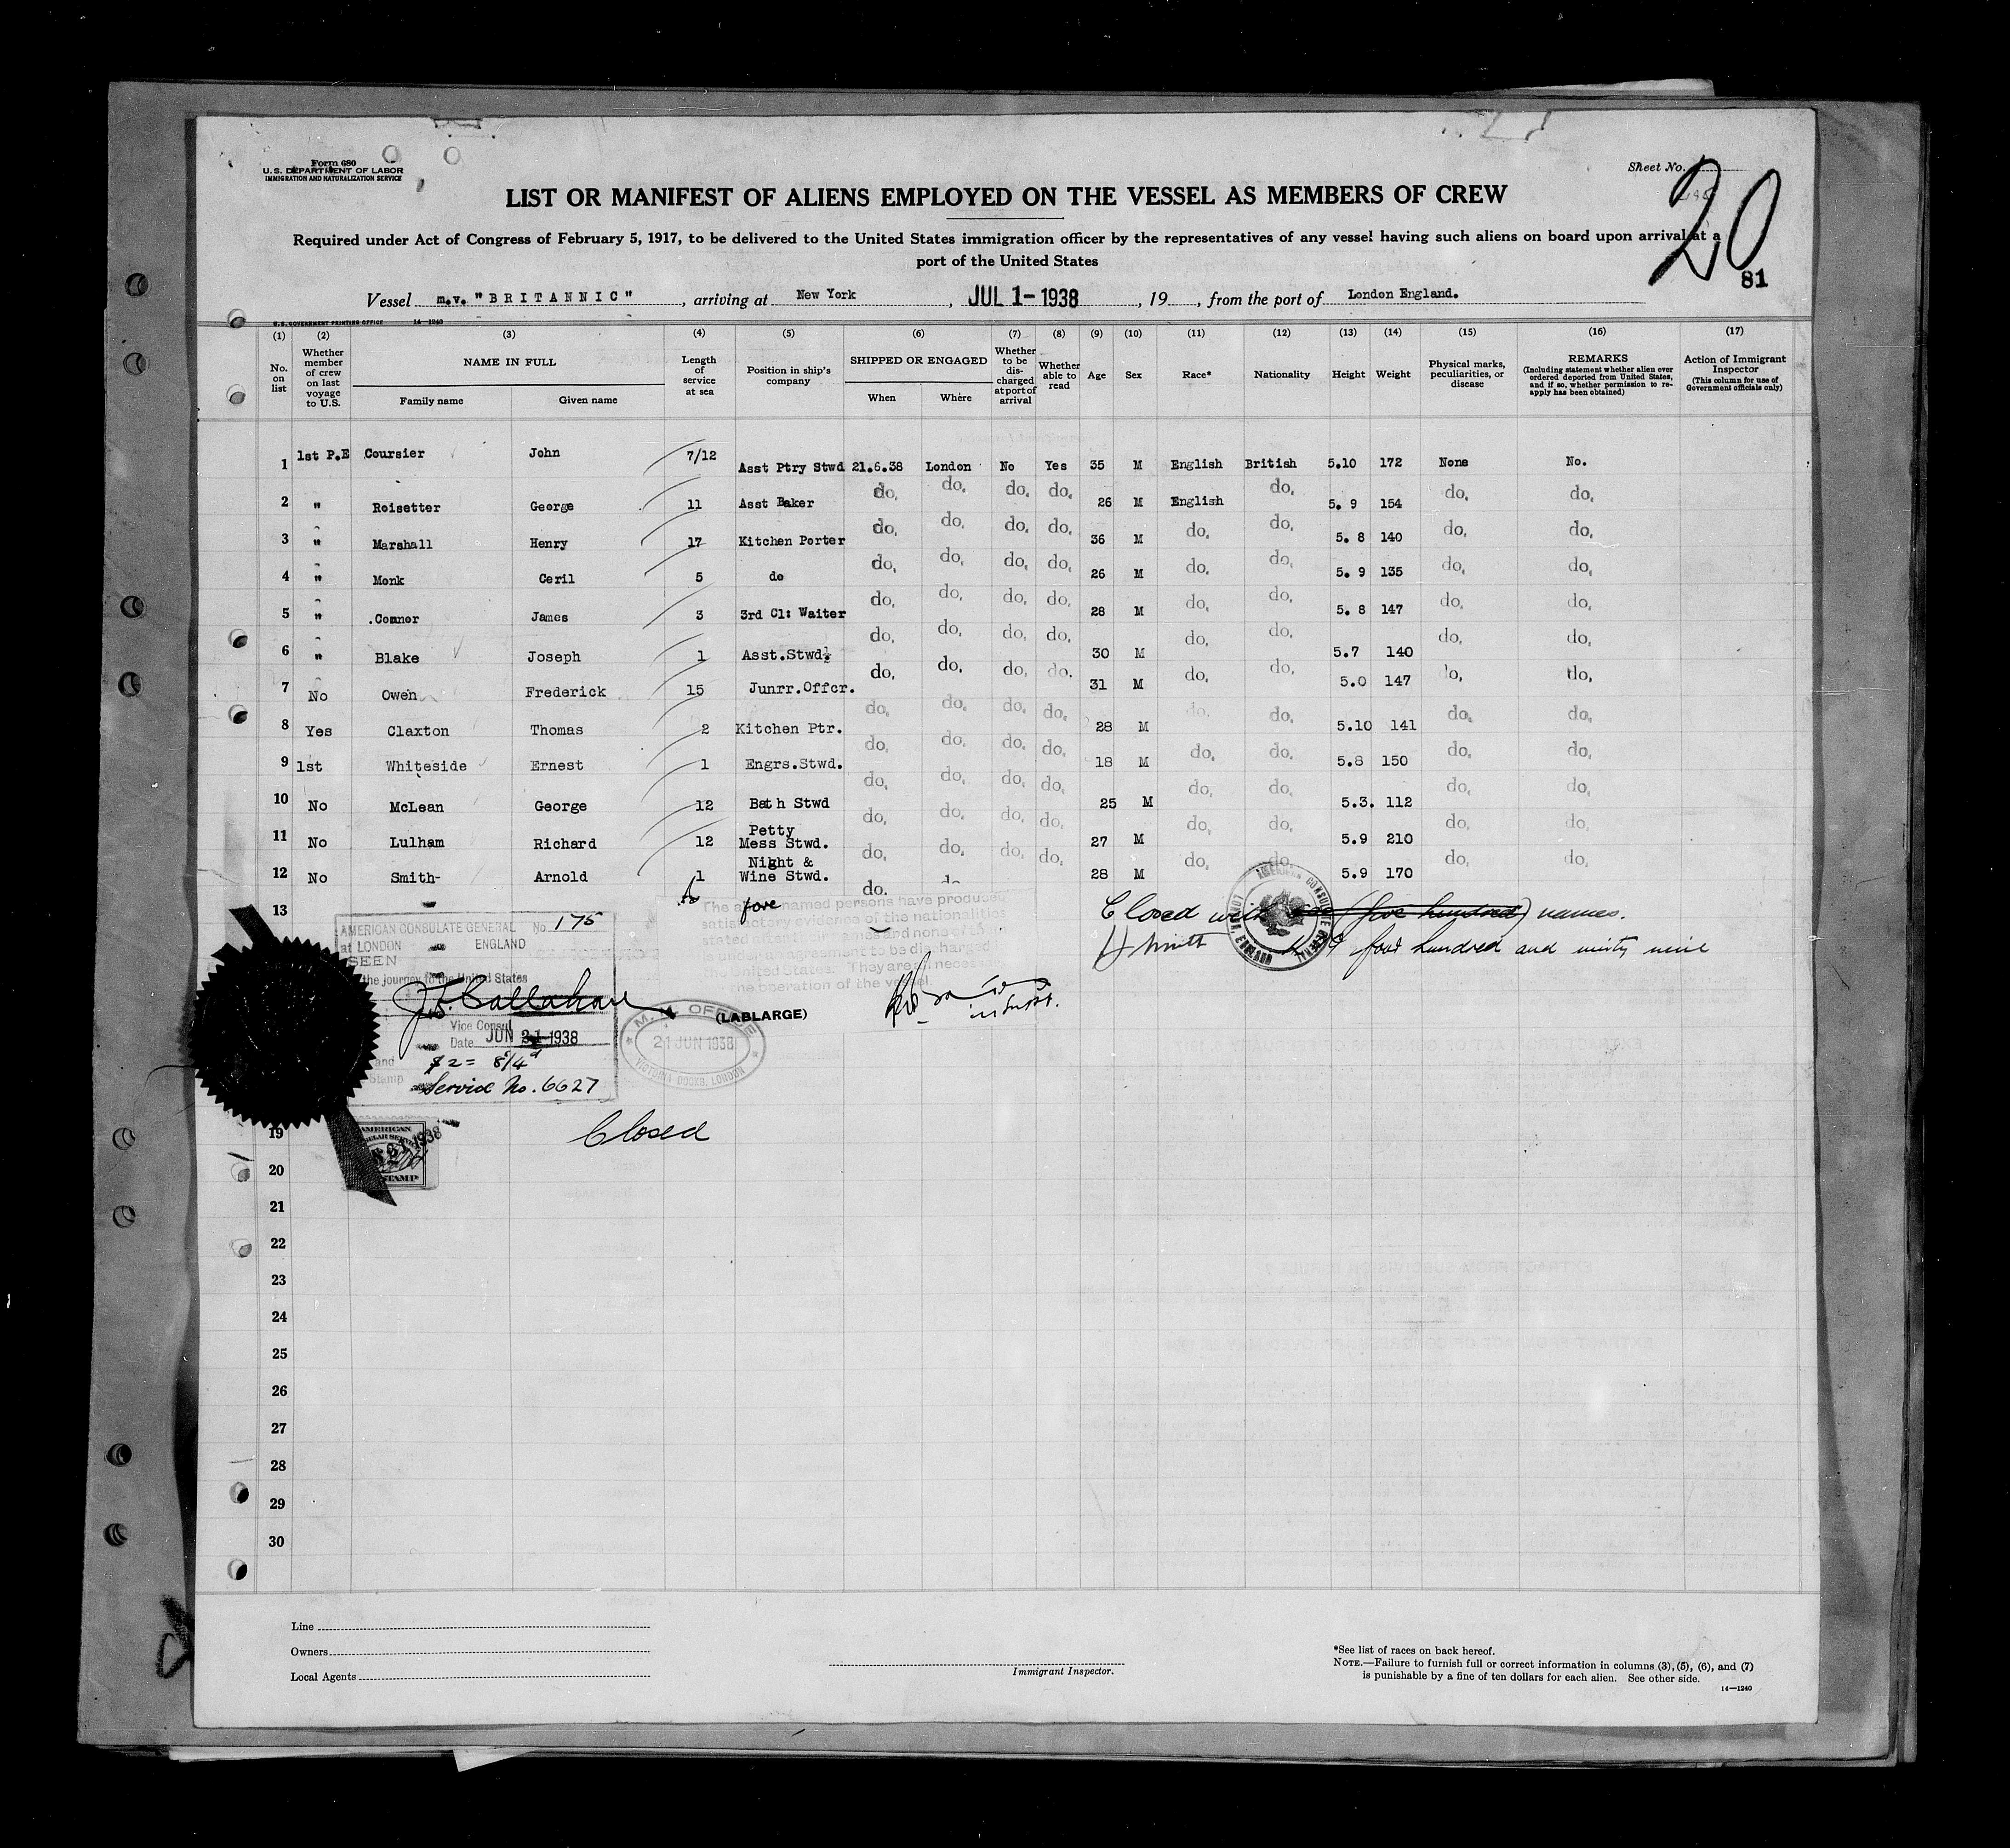 Form 680
U.S. DEPARTMENT OF LABOR
IMMIGRATION AND NATURALIZATION SERVICE
Sheet No.
20
81
LIST OR MANIFEST OF ALIENS EMPLOYED ON THE VESSEL AS MEMBERS OF CREW
Required under Act of Congress of February 5, 1917, to be delivered to the United States immigration officer by the representatives of any vessel having such aliens on board upon arrival at a
port of the United States
Vessel m.v. "BRITANNIC", arriving at New York, JUL 1-1938, 19, from the port of London England.
U.S. GOVERNMENT PRINTING OFFICE 14—1240
(1) (2) (3) (4) (5) (6) (7) (8) (9) (10) (11) (12) (13) (14) (15) (16) (17)
No. on list
Whether member of crew on last voyage to U.S.
NAME IN FULL
Family name Given name
Length of service at sea
Position in ship's company
SHIPPED OR ENGAGED
When Where
Whether to be discharged at port of arrival
Whether able to read
Age Sex Race* Nationality Height Weight
Physical marks, peculiarities, or disease
REMARKS
(Including statement whether alien ever ordered deported from United States, and if so, whether permission to re-apply has been obtained)
Action of Immigrant Inspector
(This column for use of Government officials only)
1 1st P.E Coursier John 7/12 Asst Ptry Stwd 21.6.38 London No Yes 35 M English British 5.10 172 None No.
2 " Roisetter George 11 Asst Baker do. do. do. do. 26 M English do. 5. 9 154 do. do.
3 " Marshall Henry 17 Kitchen Porter do. do. do. do. 36 M do. do. 5. 8 140 do. do.
4 " Monk Ceril 5 do do. do. do. do. 26 M do. do. 5. 9 135 do. do.
5 " .Connor James 3 3rd Cl: Waiter do. do. do. do. 28 M do. do. 5. 8 147 do. do.
6 " Blake Joseph 1 Asst.Stwd. do. do. do. do. 30 M do. do. 5.7 140 do. do.
7 No Owen Frederick 15 Junrr.Offcr. do. do. do. do. 31 M do. do. 5.0 147 do. do.
8 Yes Claxton Thomas 2 Kitchen Ptr. do. do. do. do. 28 M do. do. 5.10 141 do. do.
9 1st Whiteside Ernest 1 Engrs.Stwd. do. do. do. do. 18 M do. do. 5.8 150 do. do.
10 No McLean George 12 Bath Stwd do. do. do. do. 25 M do. do. 5.3. 112 do. do.
11 No Lulham Richard 12 Petty Mess Stwd. do. do. do. do. 27 M do. do. 5.9 210 do. do.
12 No Smith- Arnold 1 Night & Wine Stwd. do. do. do. do. 28 M do. do. 5.9 170 do. do.
13
do.
The above named persons have produced
satisfactory evidence of the nationalities
stated against their names and none of them
is under an agreement to be discharged
the United States. They are all necessary
the operation of the vessel.
Closed with (five hundred) names.
four hundred and ninety nine
AMERICAN CONSULATE GENERAL
LONDON, ENGLAND
AMERICAN CONSULATE GENERAL No. 175
at LONDON ENGLAND
SEEN
the journey to the United States
Callahan
Vice Consul
Date JUN 21 1938
and
Stamp
$2= 8/4d
Service No. 6627
(LABLARGE)
M. M. OFFICE
21 JUN 1938
VICTORIA DOCKS, LONDON
AMERICAN
STAMP
Closed
19
20
21
22
23
24
25
26
27
28
29
30
Line
Owners
Local Agents
Immigrant Inspector.
*See list of races on back hereof.
NOTE.—Failure to furnish full or correct information in columns (3), (5), (6), and (7)
is punishable by a fine of ten dollars for each alien. See other side.
14—1240